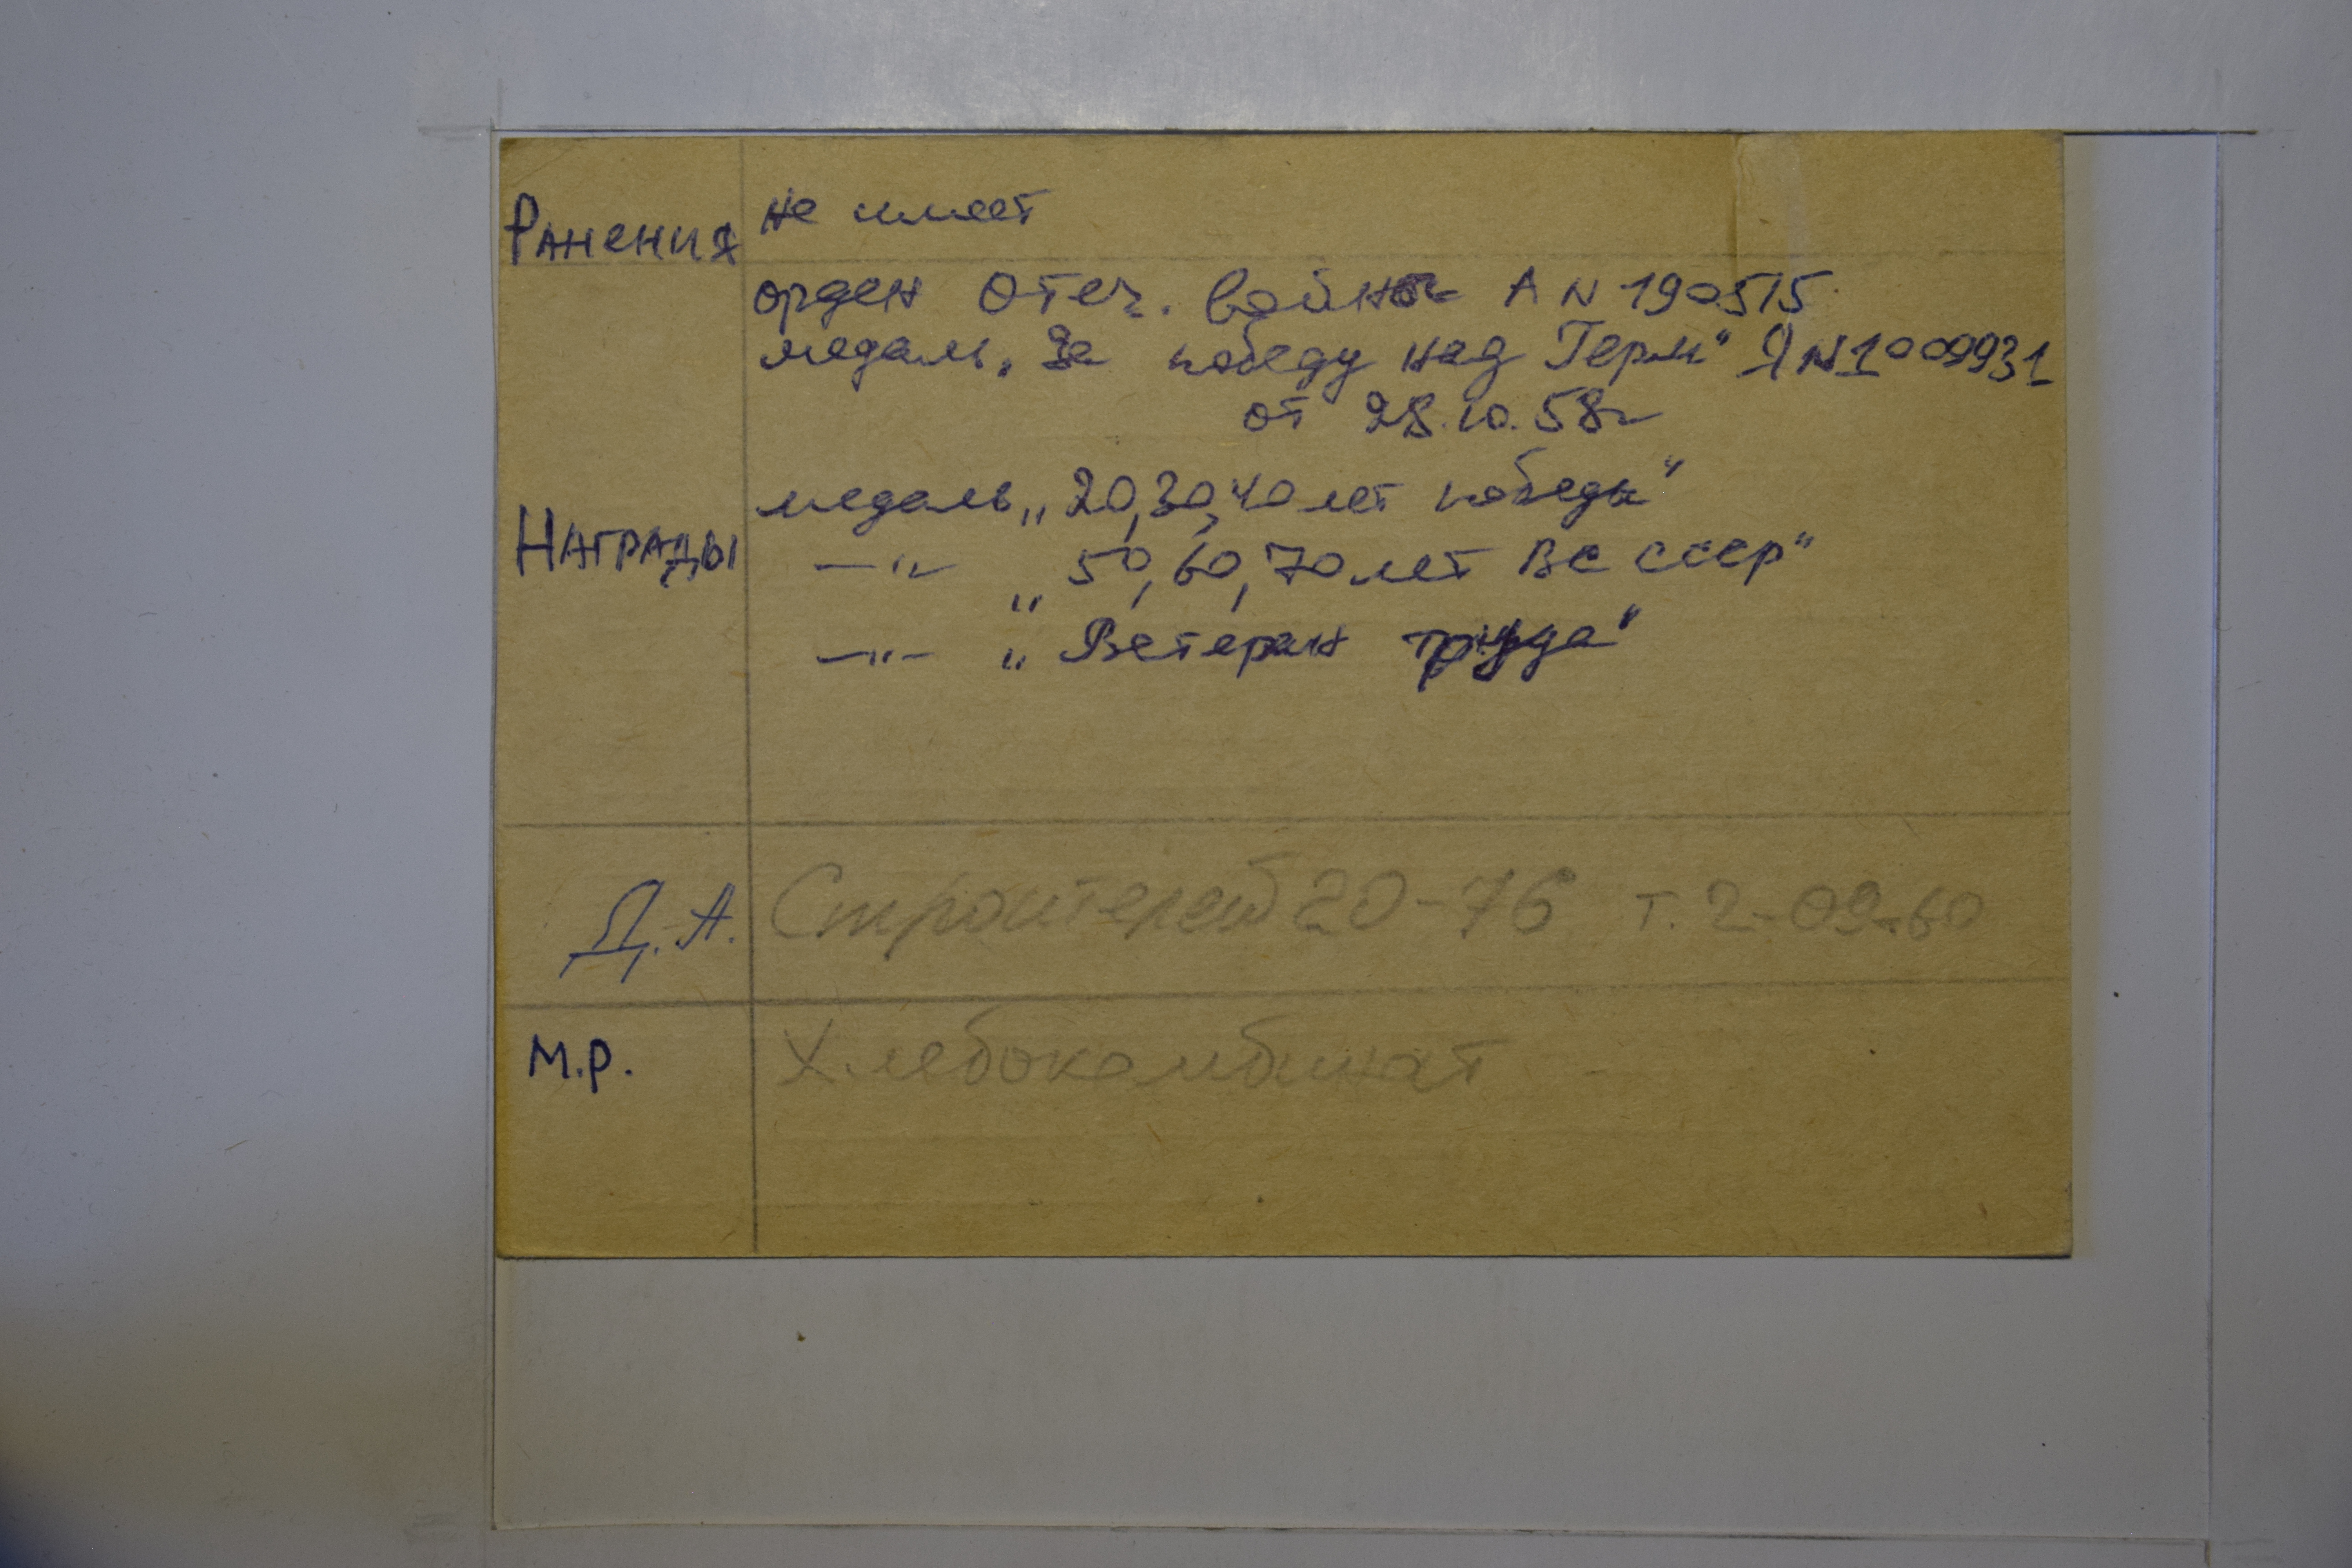 Ранения не имеет
орден Отеч. войны А N 190515
медаль „За победу над Герм" Я N 1009931
от 28.10.58г
Награды
медаль „20,30,40 лет победы"
—"— „50,60,70 лет ВС СССР"
—"— „Ветеран труда"
Д.А. Строителей 20-76 т. 2-09-60
М.Р. Хлебокомбинат